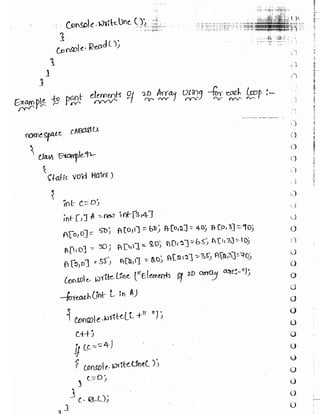 Console.WriteLine();
}
Console.Read();
}
}
}
Example to print elements of 2D Array using for each loop :-
namespace
{
class Example
{
static void Main()
{
int c=0;
int [,] A = new int[3,4]
A[0,0]= 50; A[0,1]= 60; A[0,2]= 40; A[0,3]=70;
A[1,0] = 30; A[1,1]= 80; A[1,2]=65; A[1,3]=10;
A[2,0] = 55; A[2,1] = 80; A[2,2]= 35; A[2,3]=70;
Console.WriteLine("Elements of 2D array are:-");
foreach(int i in A)
{
Console.Write(i +" ");
c++;
if (c==4)
{
Console.WriteLine();
c=0;
}
}
C.R();
}